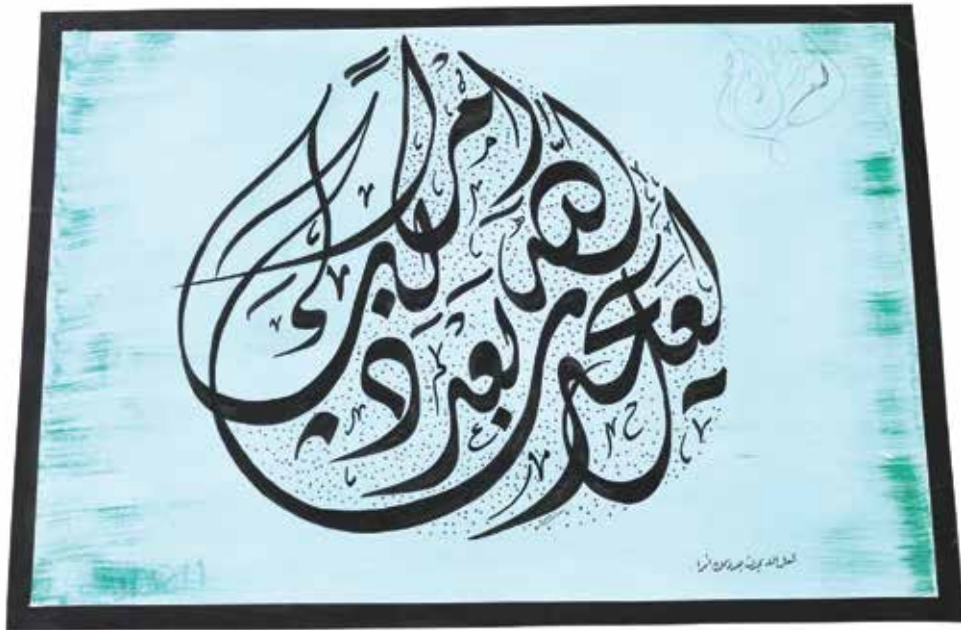 لعل الله يحدث بعد ذلك أمرا
لعل الله يحدث بعد ذلك أمرا